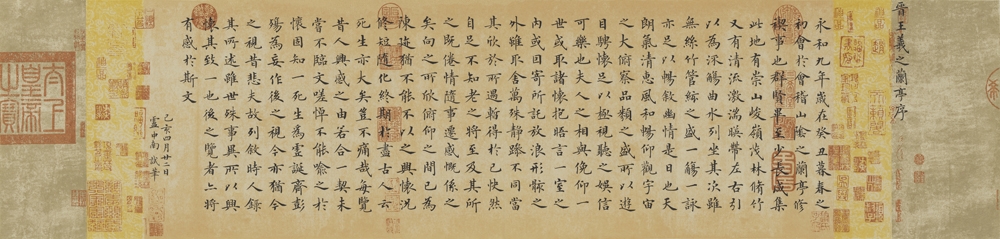 晋王羲之蘭亭序
永和九年歲在癸丑暮春之
初會於會稽山陰之蘭亭修
禊事也群賢畢至少長咸集
此地有崇山峻嶺茂林脩竹
又有清流激湍暎帶左右引
以為流觴曲水列坐其次雖
無絲竹管絃之盛一觴一詠
亦足以暢敘幽情是日也天
朗氣清惠風和暢仰觀宇宙
之大俯察品類之盛所以遊
目騁懷足以極視聽之娛信
可樂也夫人之相與俛仰一
世或取諸懷抱晤言一室之
內或因寄所託放浪形骸之
外雖取舍萬殊靜躁不同當
其欣於所遇暫得於己快然
自足不知老之將至及其所
之既倦情隨事遷感慨係之
矣向之所欣俯仰之間已為
陳迹猶不能不以之興懷況
脩短隨化終期於盡古人云
死生亦大矣豈不痛哉每覽
昔人興感之由若合一契未
嘗不臨文嗟悼不能喻之於
懷固知一死生為虛誕齊彭
殤為妄作後之視今亦猶今
之視昔悲夫故列敘時人錄
其所述雖世殊事異所以興
懷其致一也後之覽者亦將
有感於斯文
己亥四月廿二日
中南試筆